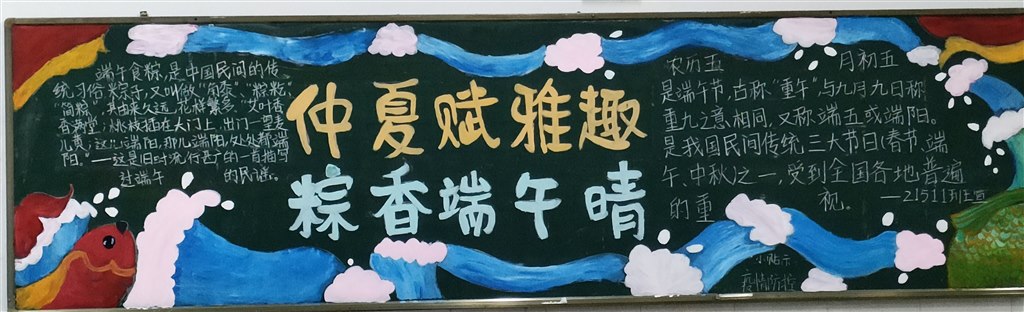 端午食粽,是中国民间的传
统习俗。粽子,又叫做"角黍"、"粽籺"、
"筒粽",其由来久远,花样繁多。"艾叶香,
香满堂,桃枝插在大门上,出门一望麦
儿黄,这儿端阳,那儿端阳,处处都端
阳。"——这是旧时流行甚广的一首描写
过端午的民谣。
仲夏赋雅趣
粽香端午晴
农历五月初五
是端午节,古称"重午"与九月九日称
重九之意相同,又称端五或端阳。
是我国民间传统三大节日(春节、端
午、中秋)之一,受到全国各地普遍
的重视。
——21511班宣
小贴士
疫情防控